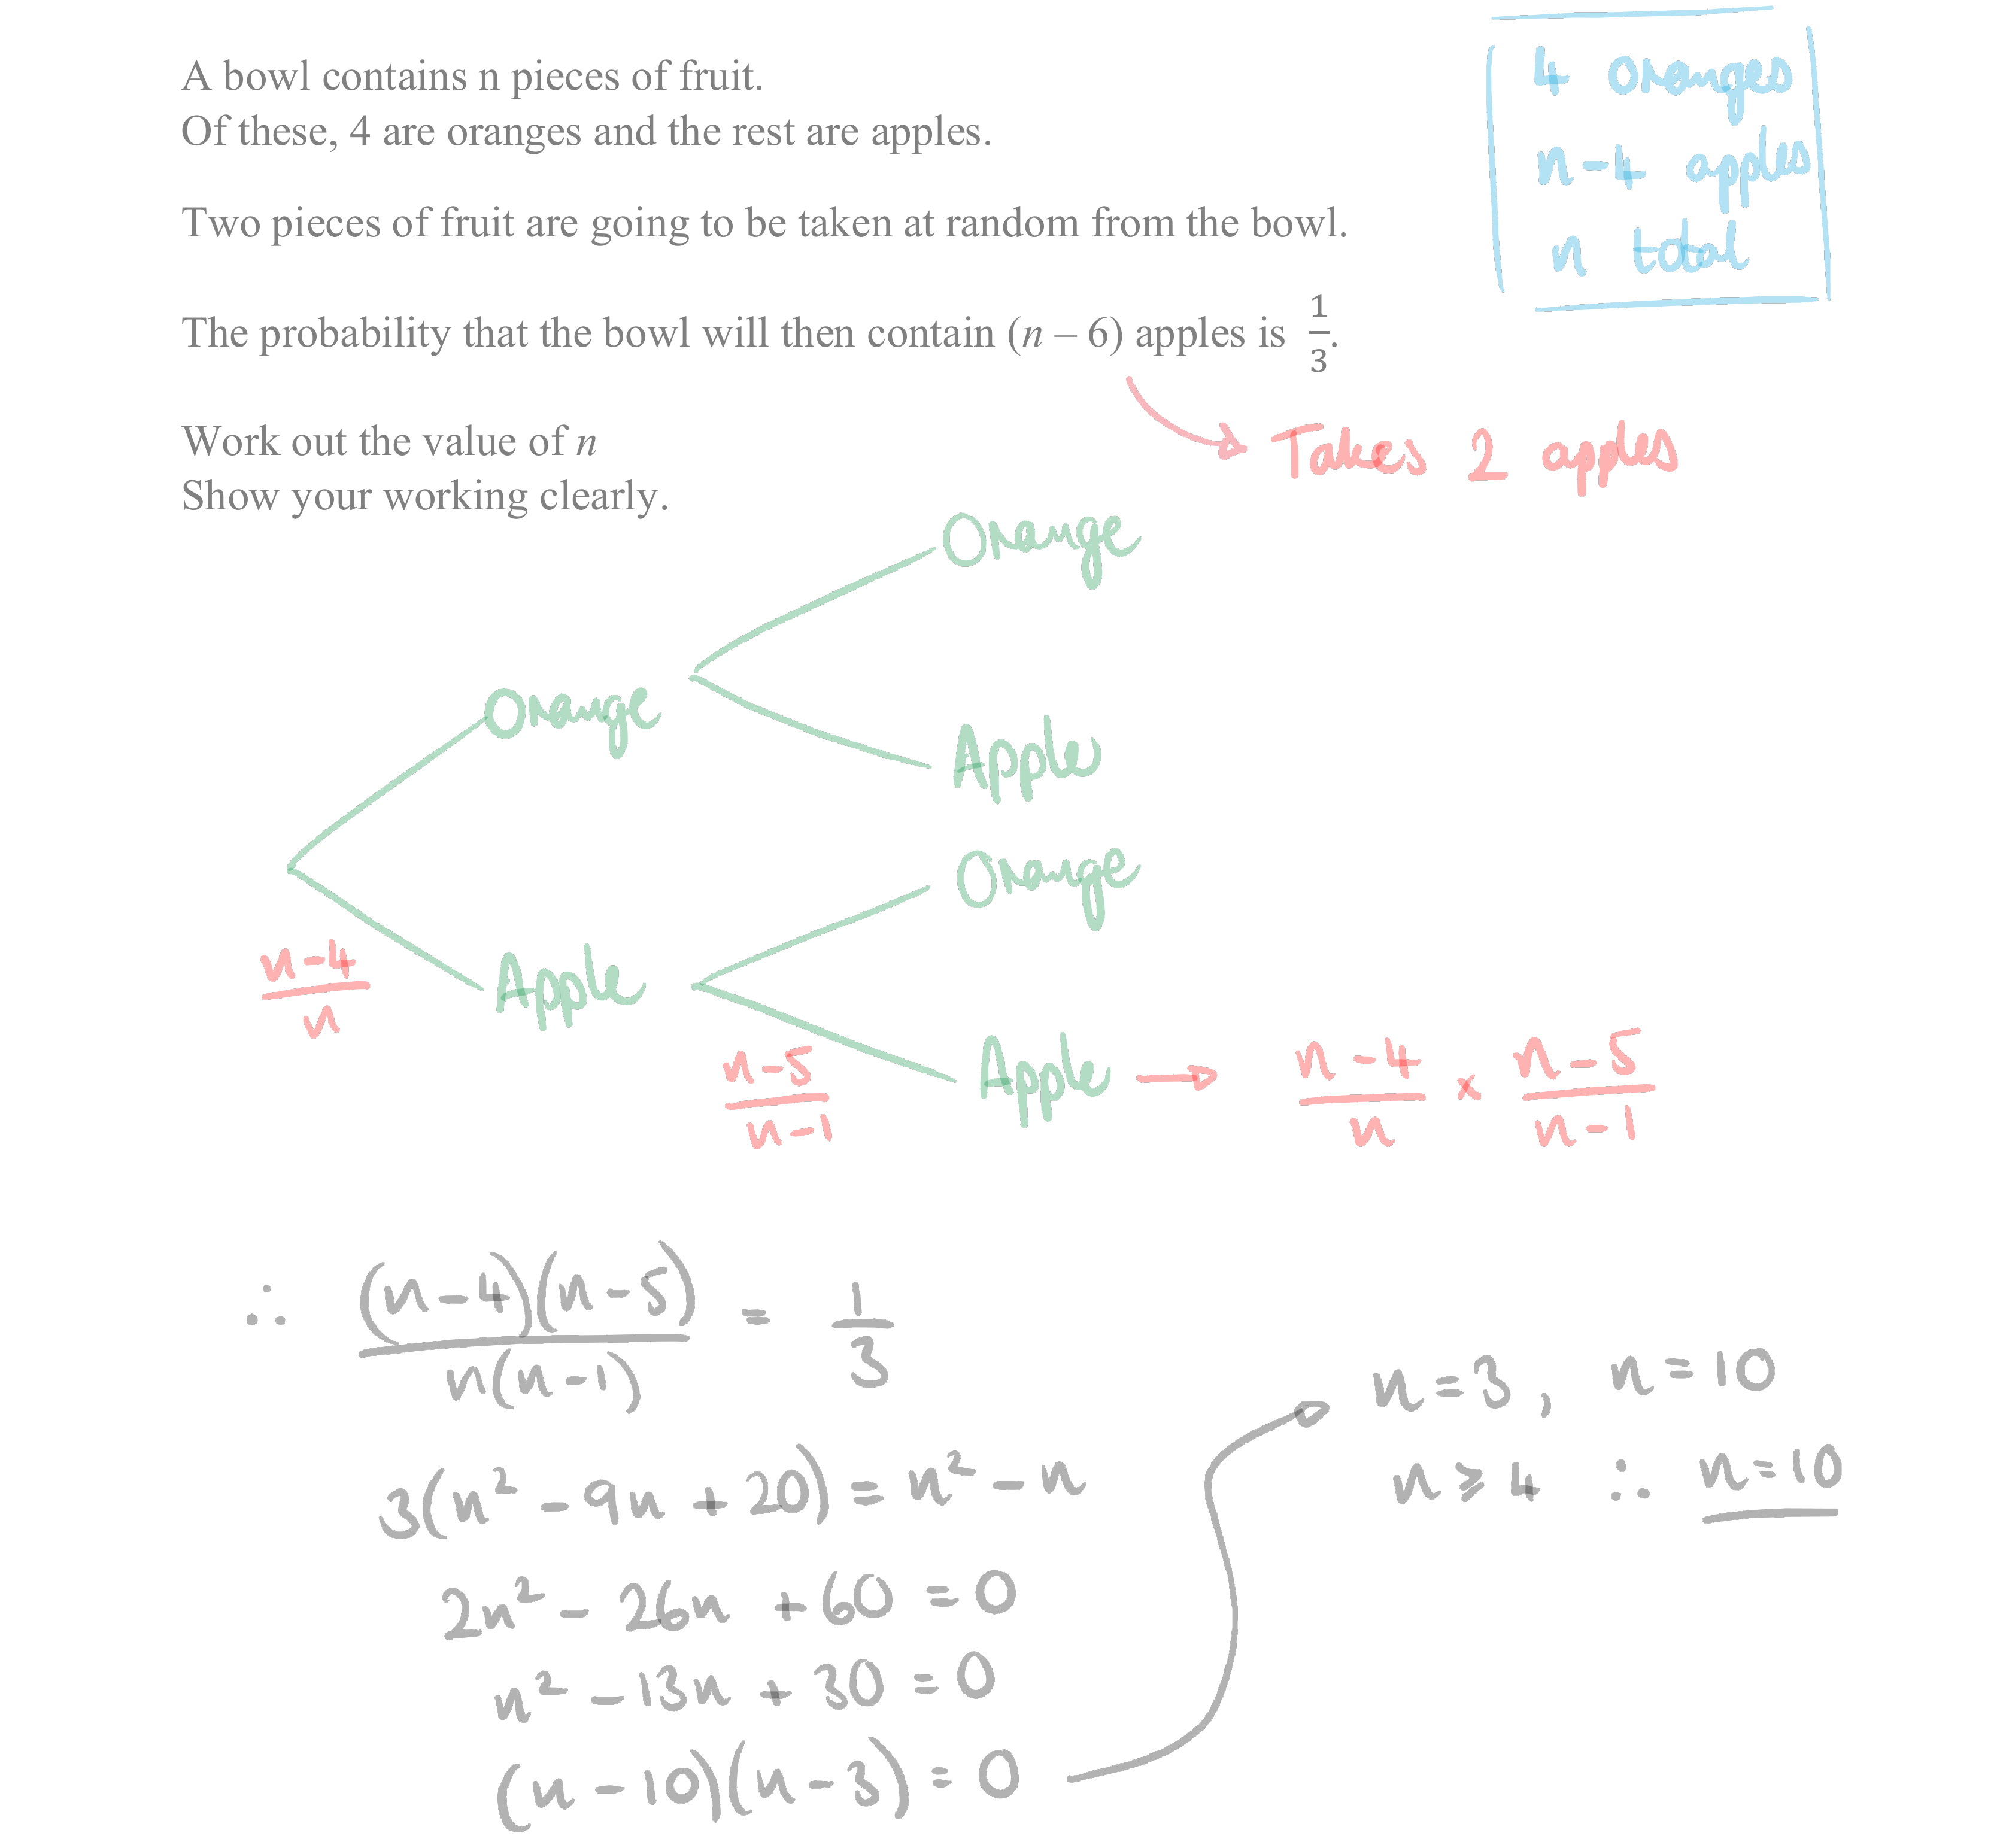 A bowl contains n pieces of fruit.
Of these, 4 are oranges and the rest are apples.
4 oranges
n-4 apples
n total
Two pieces of fruit are going to be taken at random from the bowl.
The probability that the bowl will then contain (n – 6) apples is 1/3.
Takes 2 apples
Work out the value of n
Show your working clearly.
Orange
Orange
Apple
Orange
n-4/n
Apple
n-5/n-1
Apple → n-4/n × n-5/n-1
∴ (n-4)(n-5)/n(n-1) = 1/3
3(n² - 9n + 20) = n² - n
2n² - 26n + 60 = 0
n² - 13n + 30 = 0
(n - 10)(n - 3) = 0
n = 3, n = 10
n ⩾ 4 ∴ n = 10